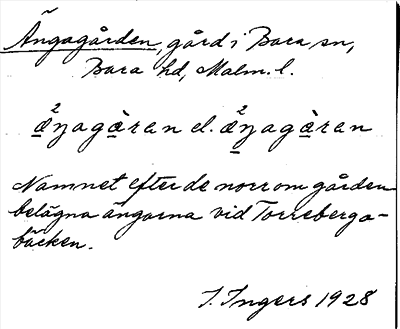 Ängagården, gård i Bara sn,
Bara hd, Malm. l.
æ̱²ŋagæ̱̀ran el. æ̱²ŋagæ̱ran
Namnet efter de norr om gården
belägna ängarna vid Torreberga-
bäcken.
I. Ingers 1928